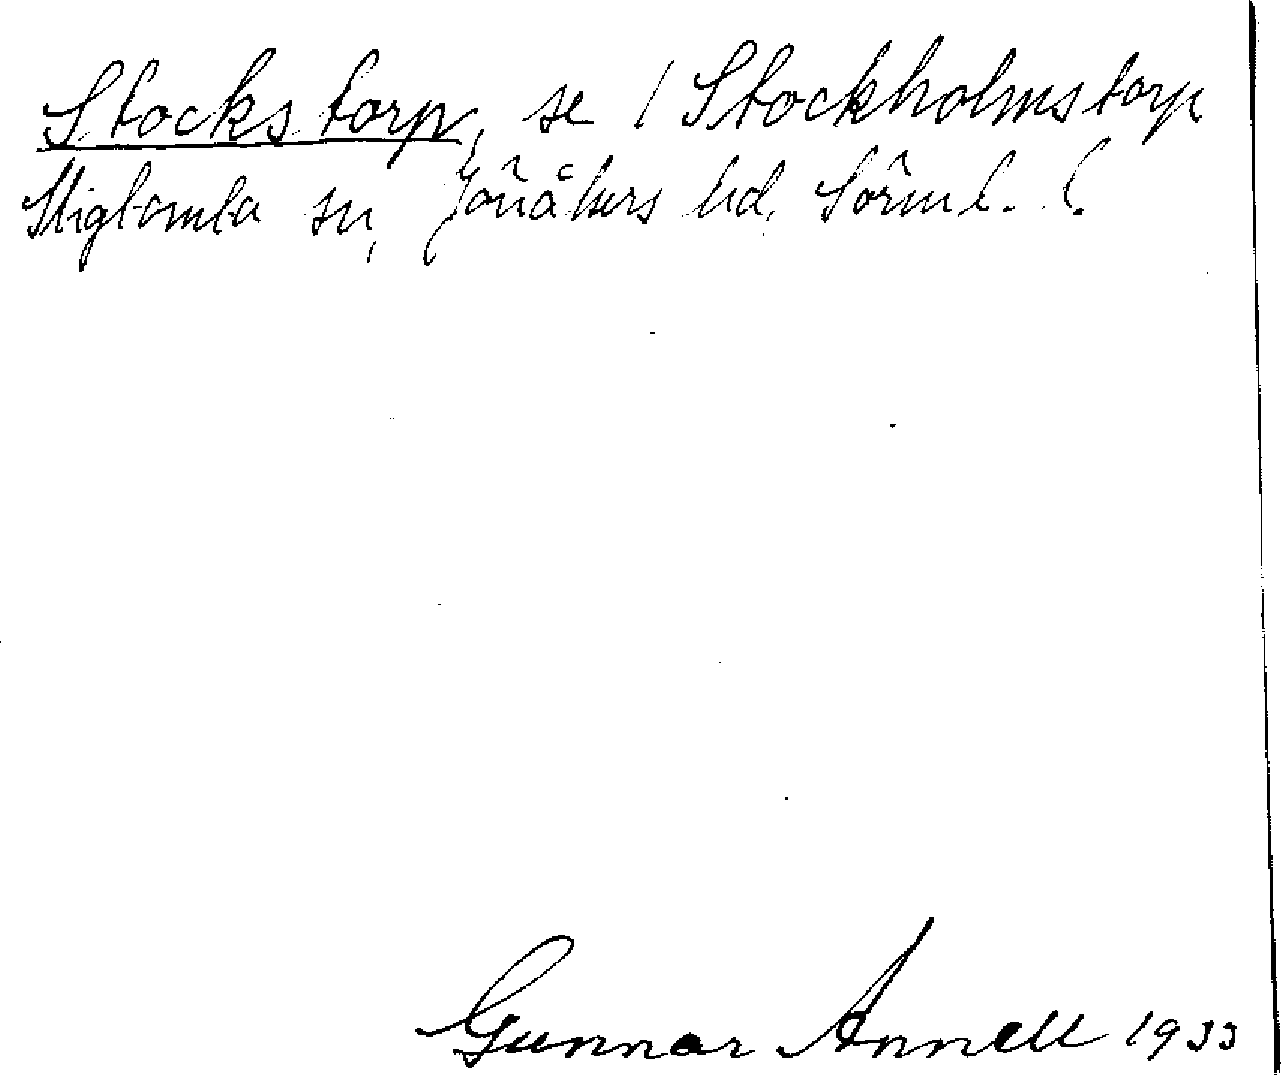 Stockstorp, se / Stockholmstorp
Stigtomta sn, Jönåkers hd. Sörml. l.
Gunnar Annell 1933